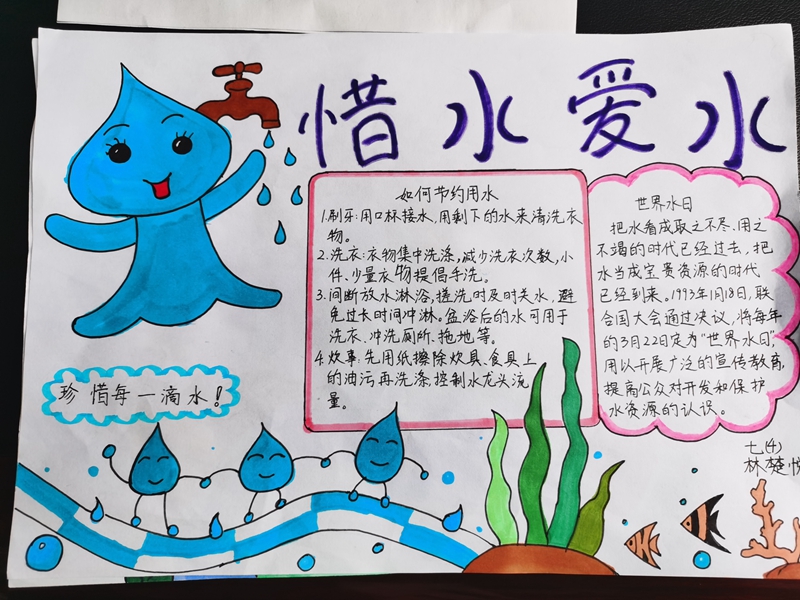 惜水爱水
如何节约用水
1.刷牙:用口杯接水,用剩下的水来清洗衣
物。
2.洗衣:衣物集中洗涤,减少洗衣次数,小
件、少量衣物提倡手洗。
3.间断放水淋浴,搓洗时及时关水,避
免过长时间冲淋。盆浴后的水可用于
洗衣、冲洗厕所、拖地等。
4.炊事:先用纸擦除炊具、食具上
的油污再洗涤,控制水龙头流
量。
世界水日
把水看成取之不尽、用之
不竭的时代已经过去,把
水当成宝贵资源的时代
已经到来。1993年1月18日,联
合国大会通过决议,将每年
的3月22日定为“世界水日”
用以开展广泛的宣传教育,
提高公众对开发和保护
水资源的认识。
珍惜每一滴水!
七(4)
林楚